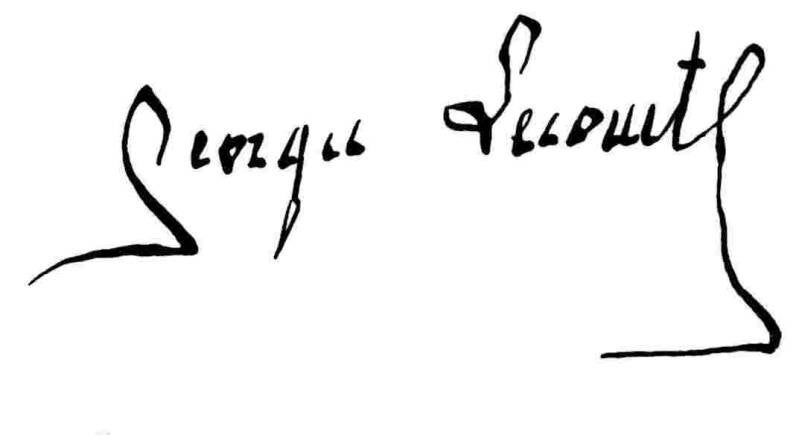 Georges Lecomte